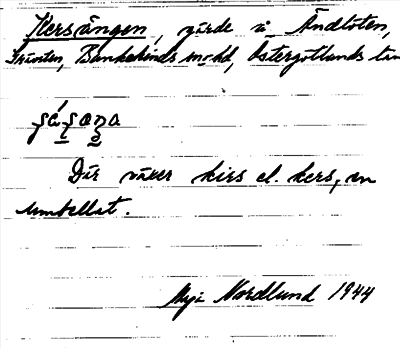 Kersängen, gärde i Åndtöten,
Grinsten, Bankekinds sn o hd, Östergötlands län
Där växer kirs el. kers, en
umbellat.
Maja Nordlund 1944